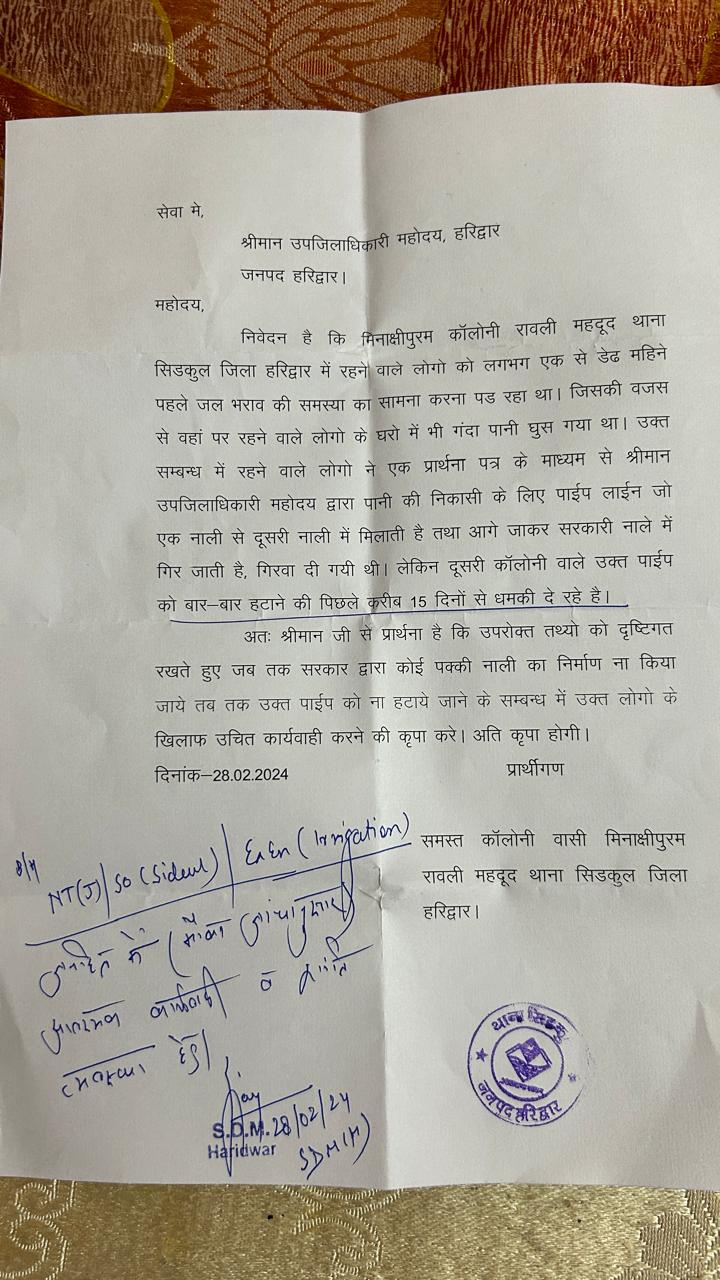 सेवा मे,
श्रीमान उपजिलाधिकारी महोदय, हरिद्वार
जनपद हरिद्वार।
महोदय,
निवेदन है कि मिनाक्षीपुरम कॉलोनी रावली महदूद थाना
सिडकुल जिला हरिद्वार में रहने वाले लोगो को लगभग एक से डेढ महिने
पहले जल भराव की समस्या का सामना करना पड रहा था। जिसकी वजस
से वहां पर रहने वाले लोगो के घरो में भी गंदा पानी घुस गया था। उक्त
सम्बन्ध में रहने वाले लोगो ने एक प्रार्थना पत्र के माध्यम से श्रीमान
उपजिलाधिकारी महोदय द्वारा पानी की निकासी के लिए पाईप लाईन जो
एक नाली से दूसरी नाली में मिलाती है तथा आगे जाकर सरकारी नाले में
गिर जाती है, गिरवा दी गयी थी। लेकिन दूसरी कॉलोनी वाले उक्त पाईप
को बार–बार हटाने की पिछले करीब 15 दिनों से धमकी दे रहे है।
अतः श्रीमान जी से प्रार्थना है कि उपरोक्त तथ्यो को दृष्टिगत
रखते हुए जब तक सरकार द्वारा कोई पक्की नाली का निर्माण ना किया
जाये तब तक उक्त पाईप को ना हटाये जाने के सम्बन्ध में उक्त लोगो के
खिलाफ उचित कार्यवाही करने की कृपा करे। अति कृपा होगी।
दिनांक–28.02.2024
प्रार्थीगण
समस्त कॉलोनी वासी मिनाक्षीपुरम
रावली महदूद थाना सिडकुल जिला
हरिद्वार।
NT(J)/SO (Sidcul)/ExEn (Irrigation)
जनहित में (मौका जांचानुसार)
आवश्यक कार्यवाही व शांति
व्यवस्था हेतु।
S.D.M. 28/02/24
Haridwar SDM(H)
थाना सिडकुल
जनपद हरिद्वार